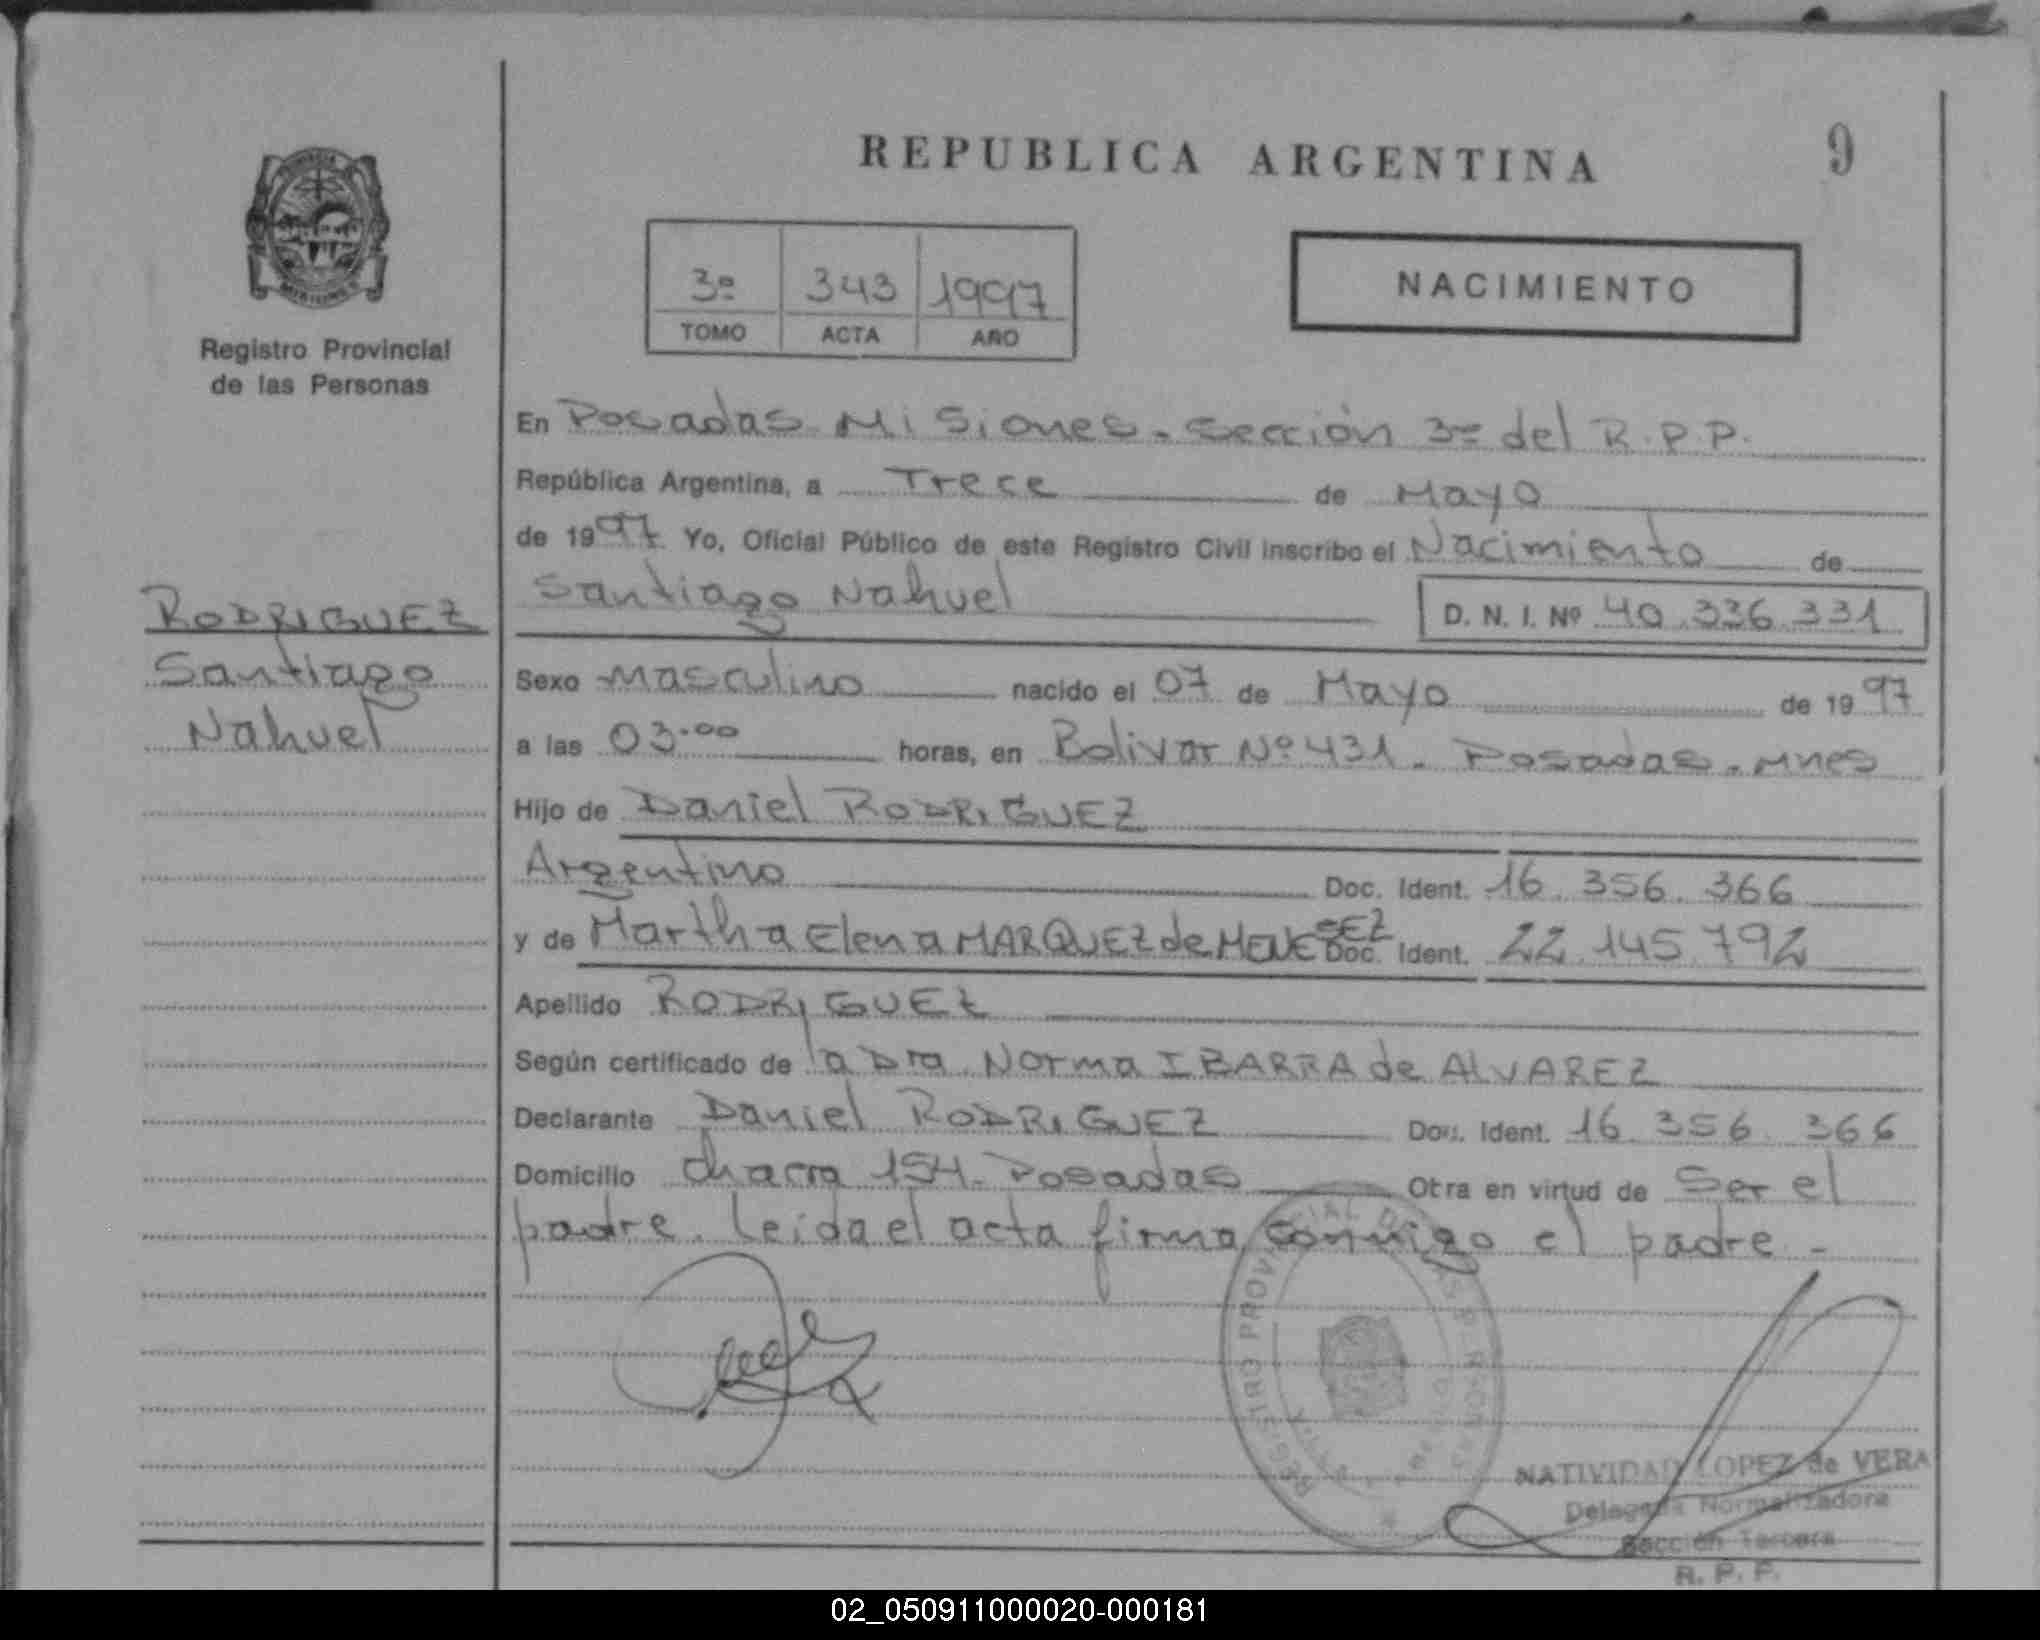 REPUBLICA ARGENTINA
9
3º 343 1997
TOMO ACTA AÑO
NACIMIENTO
Registro Provincial
de las Personas
MISIONES
RODRIGUEZ
Santiago
Nahuel
En Posadas Misiones. Sección 3º del R.P.P.
República Argentina, a Trece de Mayo
de 1997 Yo, Oficial Público de este Registro Civil inscribo el Nacimiento de
Santiago Nahuel D. N. I. Nº 40.336.331
Sexo Masculino nacido el 07 de Mayo de 1997
a las 03.00 horas, en Bolivar Nº 431. Posadas. Mnes
Hijo de Daniel RODRIGUEZ
Argentino Doc. Ident. 16.356.366
y de Martha Elena MARQUEZ de MENESEZ Doc. Ident. 22.145.792
Apellido RODRIGUEZ
Según certificado de la Dra. Norma IBARRA de ALVAREZ
Declarante Daniel RODRIGUEZ Doc. Ident. 16.356.366
Domicilio chacra 154. Posadas Otra en virtud de Ser el
padre. Leida el acta firma conmigo el padre.-
REGISTRO PROVINCIAL DE LAS PERSONAS
NATIVIDAD LOPEZ de VERA
Delegada Normalizadora
Sección Tercera
R. P. P.
02_050911000020-000181